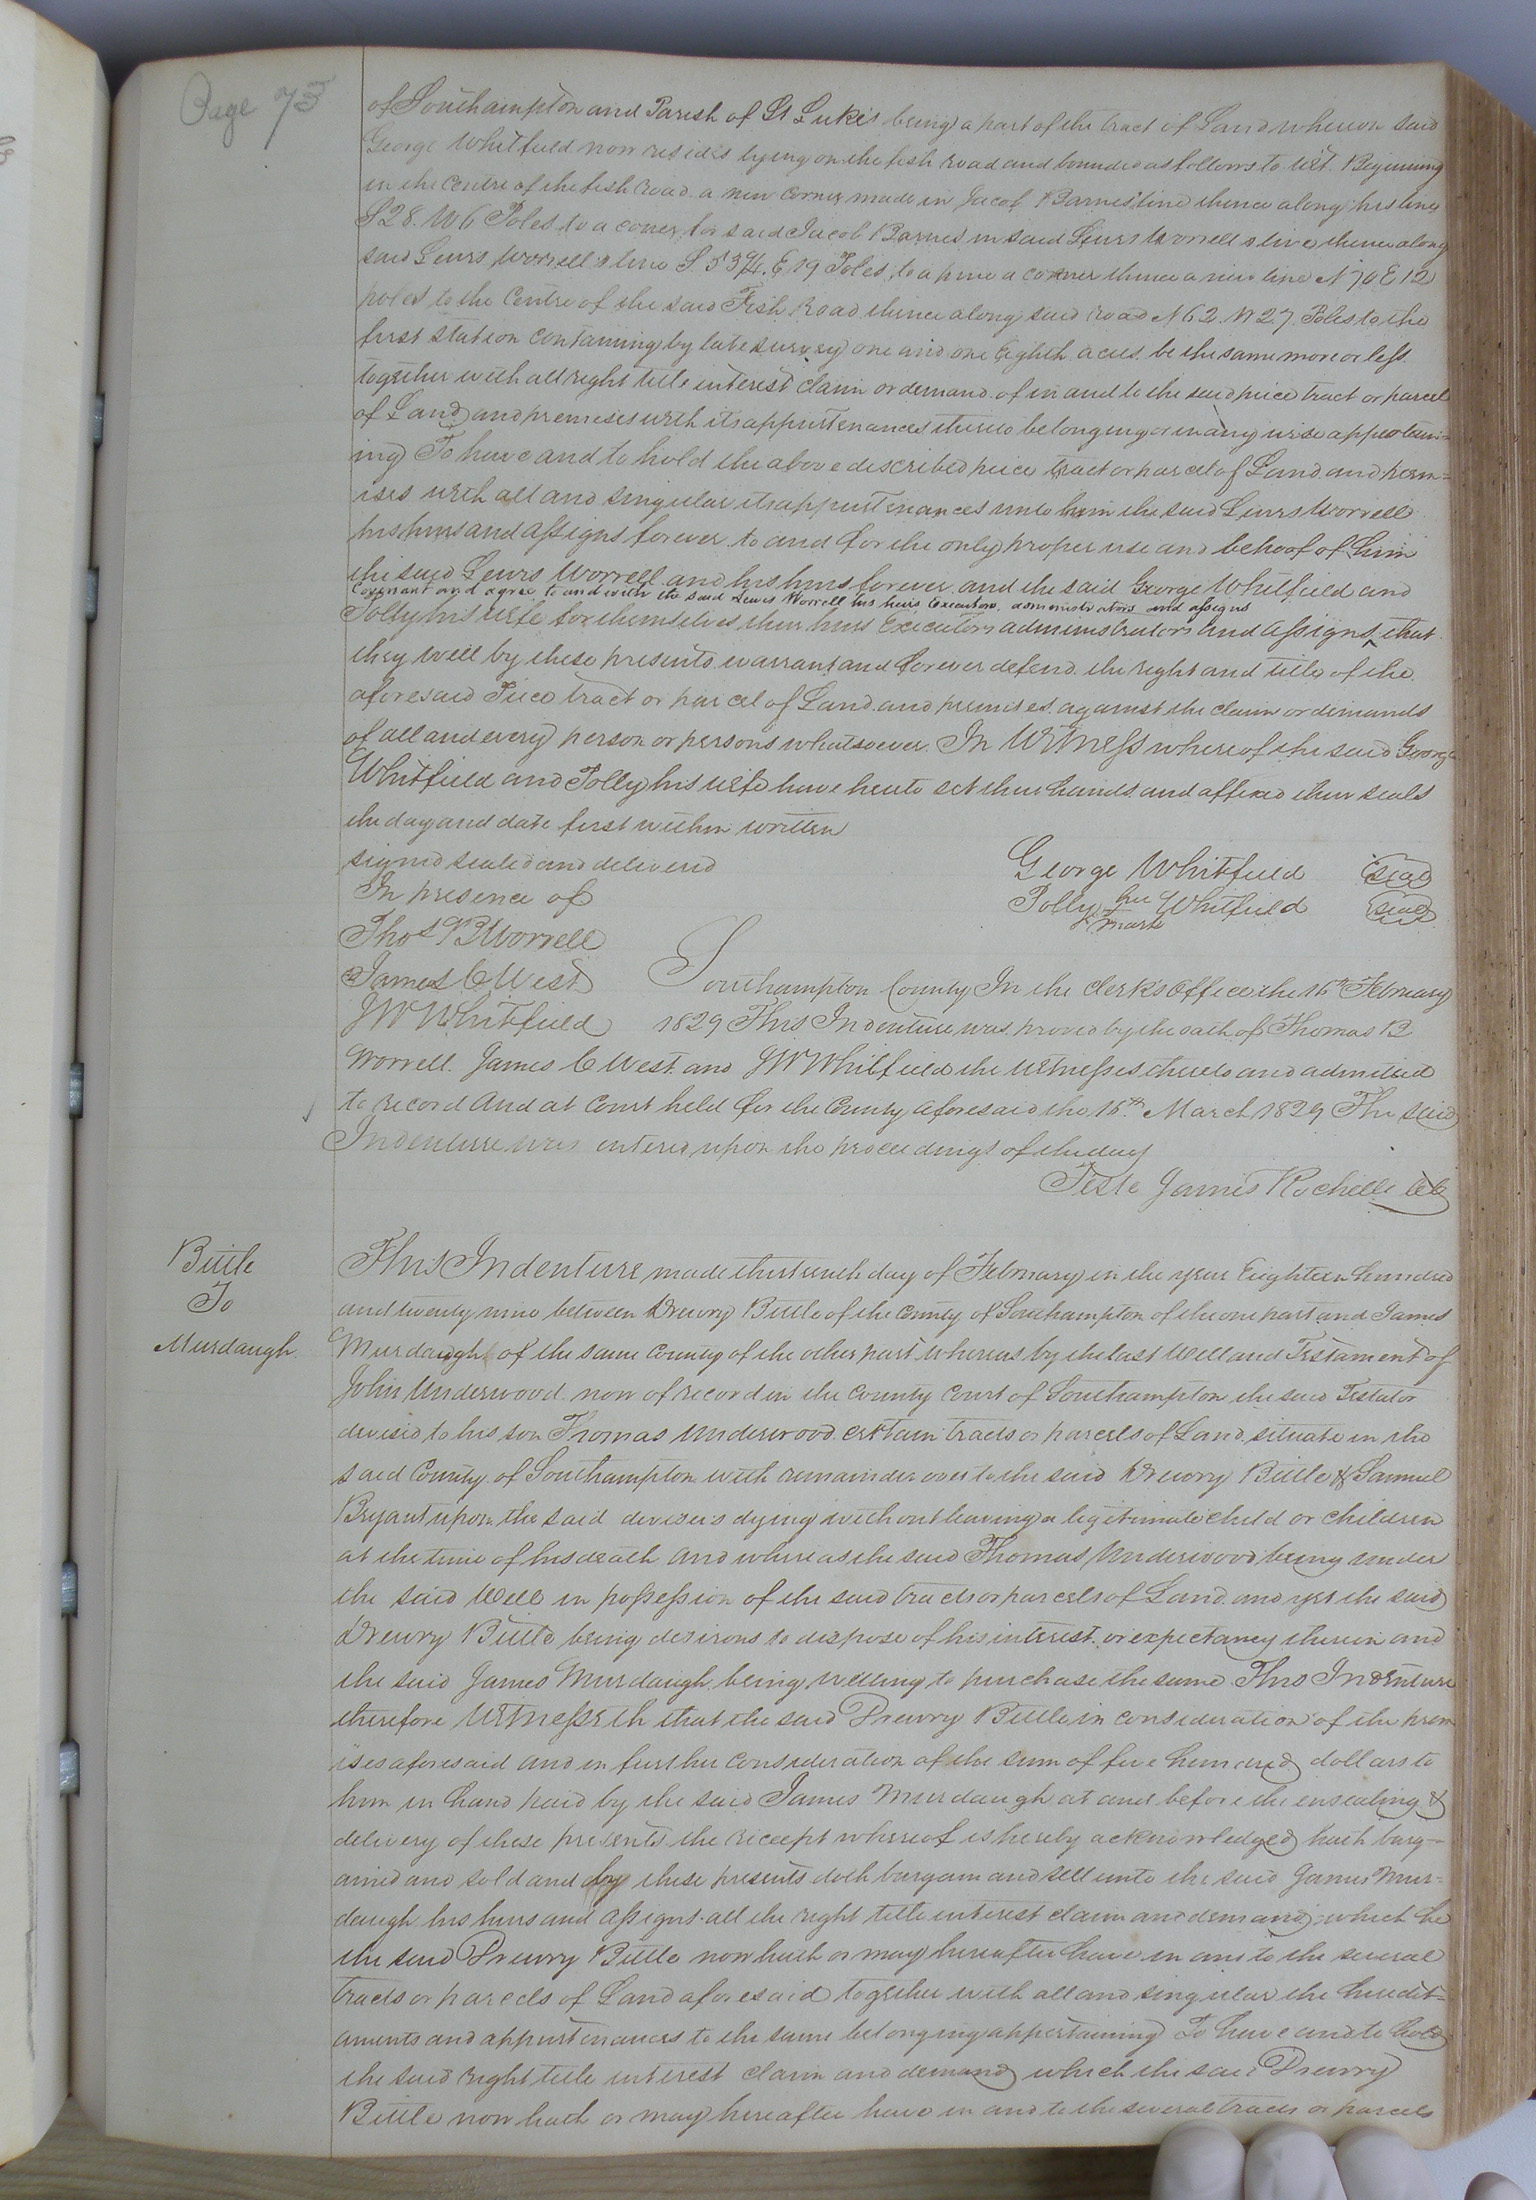 Page 73
of Southampton and Parish of St Lukes being a part of the tract of Land whereon said
George Whitfield now resides lying on the fish road and bounded as follows to wit. Beginning
in the centre of the fish road a new corner made in Jacob Barnes line thence along his line
S 28. W 6 Poles to a corner for said Jacob Barnes in said Lewis Worrells line thence along
said Lewis Worrells line S 53 3/4. E 19 Poles, to a pine a corner thence a new line N 70 E 12
poles to the Centre of the said Fish Road thence along said road N 62. W 27. Poles to the
first station containing by late survey one and one Eighth acres be the same more or less
together with all right title interest claim or demand of in and to the said piece tract or parcel
of Land and premises with its appurtenances thereto belonging or in any wise appertain=
ing To have and to hold the above described piece tract or parcel of Land and prem=
ises with all and singular its appurtenances unto him the said Lewis Worrell
his heirs and assigns forever to and for the only proper use and behoof of him
the said Lewis Worrell and his heirs forever and the said George Whitfield and
Covenant and agree to and with the said Lewis Worrell his heirs Executors, administrators and assigns
Polly his wife for themselves their heirs Executors administrators and assigns ^ that
they will by these presents warrant and forever defend the right and title of the
aforesaid Piece tract or parcel of Land and premises against the claim or demands
of all and every person or persons whatsoever. In Witness whereof the said George
Whitfield and Polly his wife have heunto set their hands and affixed their seals
the day and date first within written
signed sealed and delivered
In presence of
George Whitfield seal
Polly her + mark Whitfield seal
Thos B Worrell
James C West
JW Whitfield
Southampton County In the Clerk's Office the 16th February
1829 This Indenture was proved by the oath of Thomas B
Worrell. James C West and JW Whitfield the witnesses thereto and admitted
to record And at Court held for the County aforesaid the 16th March 1829 The said
Indenture was entered upon the proceedings of the day
Teste James Rochelle CC
Bittle
To
Murdaugh
This Indenture made thirteenth day of February in the year Eighteen hundred
and twenty nine between Drewry Bittle of the County of Southampton of the one part and James
Murdaugh of the same County of the other part whereas by the last Will and Testament of
John Underwood now of record in the County Court of Southampton the said Testator
devised to his son Thomas Underwood certain tracts or parcels of Land situate in the
said County of Southampton with remainder over to the said Drewry Bittle & Samuel
Bryant upon the said devisees dying without leaving a legitimate child or children
at the time of his death And where as the said Thomas Underwood being under
the said Will in possession of the said tracts or parcels of Land and yet the said
Drewry Bittle being desirous to dispose of his interest or expectancy therein and
the said James Murdaugh being willing to purchase the same This Indenture
therefore Witnesseth that the said Drewry Bittle in consideration of the prem
ises aforesaid and in further consideration of the sum of five hundred dollars to
him in hand paid by the said James Murdaugh at and before the ensealing &
delivery of these presents the receipt whereof is hereby acknowledged hath barg-
ained and sold and by these presents doth bargain and sell unto the said James Mur=
daugh his heirs and assigns all the right title interest claim and demand which he
the said Drewry Bittle now hath or may hereafter have in and to the several
tracts or parcels of Land aforesaid together with all and singular the heredit=
aments and appurtenances to the same belonging appertaining To have and to hold
the said right title interest claim and demand which the said Drewry
Bittle now hath or may hereafter have in and to the several tracts or parcels